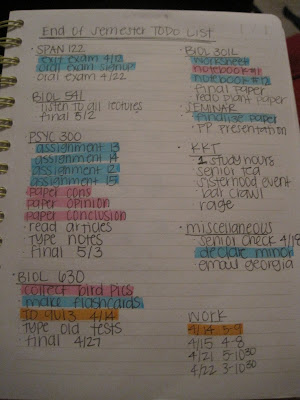 End of semester TODO List
· SPAN 122
exit exam 4/13
oral exam signup
oral exam 4/22
BIOL 541
listen to all lectures
final 5/2
PSYC 300
assignment 13
assignment 14
assignment 2
assignment 15
paper cons
paper opinion
paper conclusion
· read articles
type notes
· final 5/3
· BIOL 630
collect bird pics
make flashcards
TQ quiz 4/14
type old tests
· final 4/27
· BIOL 301L
worksheet
notebook #1
notebook #2
final paper
redo plant paper
SEMINAR
finalize paper
· PP presentation
· KKΓ
1 study hours
senior tea
sisterhood event
bar crawl
rage
· miscellaneous
senior check 4/18
declare minor
email georgia
WORK
4/14 5-9
4/15 4-8
4/21 5-10:30
4/22 3-10:30